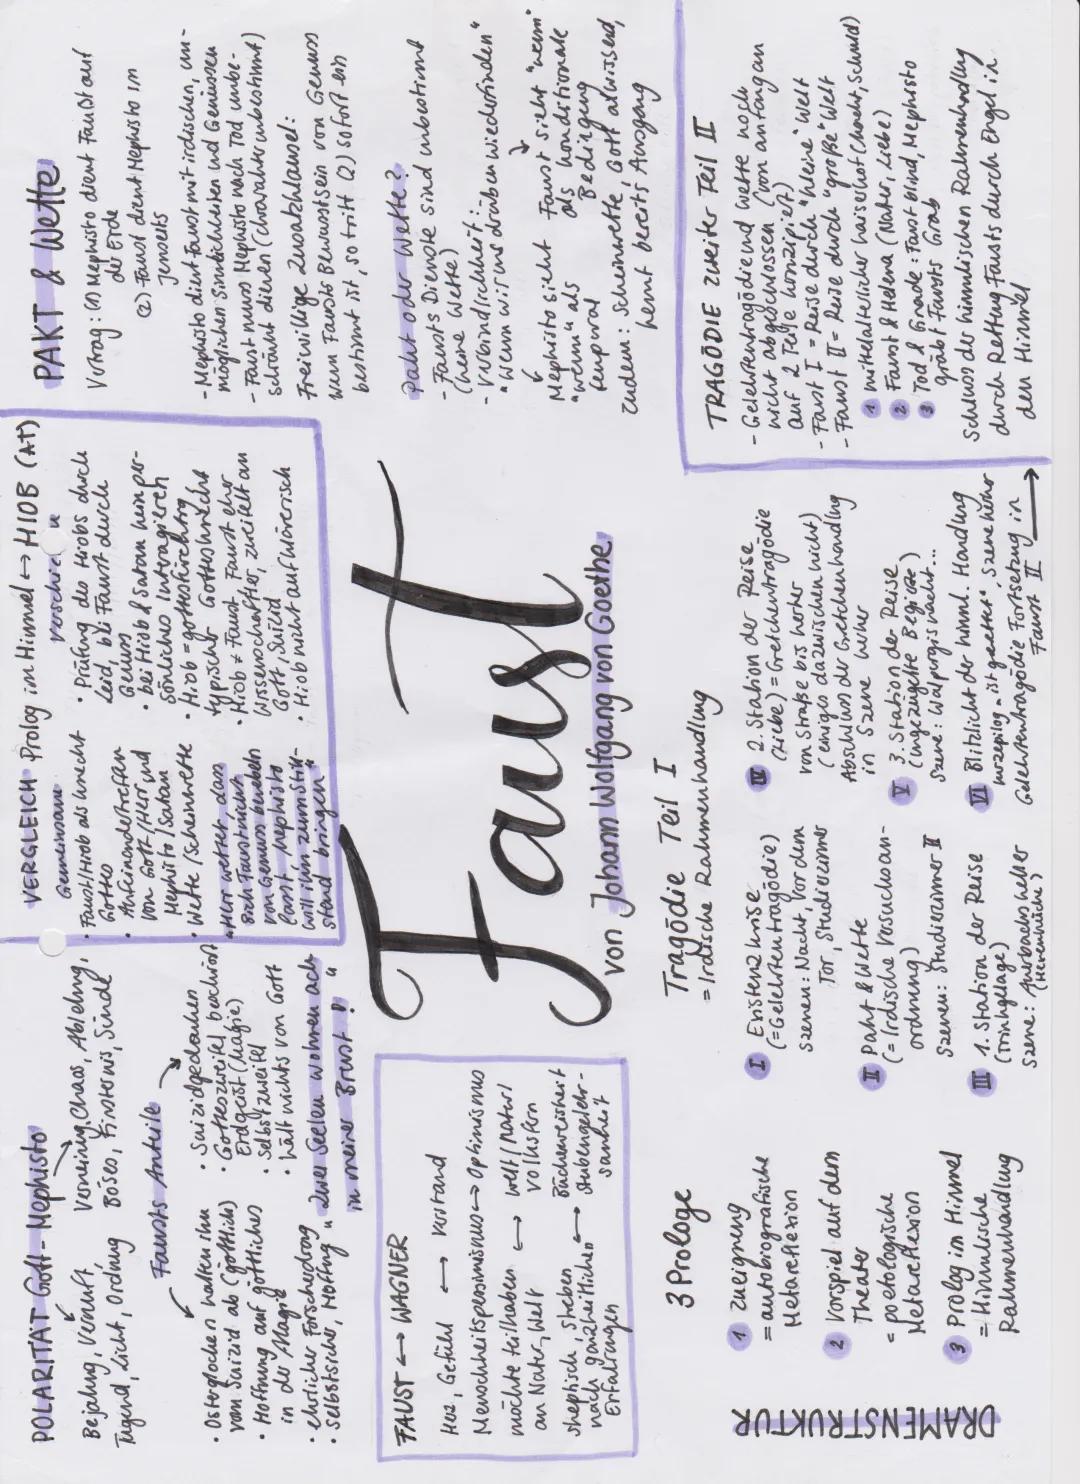 POLARITÄT Gott-Mephisto
Bejahung, Vernunft
Tugend, Licht, Ordnung
Verneinung, Chaos, Ablehng.
Böses, Finsternis, Sünde
Fausts Anteile
• Osterglocken halten ihn
vom Suizid ab (göttlich)
• Hoffnung auf göttliches
in der Magie
• ehrlicher Forscherdrang
• selbstsicher, Hoffng
• Suizidgedanken
• Gotteszweifel beschwört
Erdgeist (Magie)
• Selbstzweifel
• hält nichts von Gott
"zwei Seelen wohnen ach
in meiner Brust!"
VERGLEICH Prolog im Himmel ↔ HIOB (AT)
Gemeinsam
• Faust/Hiob als Knecht
Gottes
• Aufeinandertreffen
von Gott/Herr und
Mephisto/Satan
• Wette/Scheinwette
"Herr wettet dass
sich Faust nicht
von Genuss benebeln
lässt, Mephisto
will ihn zum Still-
stand bringen"
• Prüfung des Hiobs durch
Leid, bei Faust durch
Genuss
• bei Hiob & Satan kein per-
sönliches Intragieren
• Hiob = gottesfürchtig
typischer Gottesknecht
• Hiob ≠ Faust Faust eher
Wissenschaftler, zweifelt an
Gott, Suizid
• Hiob nicht aufrührerisch
PAKT & Wette
Vertrag: (1) Mephisto dient Faust auf
der Erde
(2) Faust dient Mephisto im
Jenseits
- Mephisto dient Faust mit irdischen, un-
möglichen Sinnlichkeiten und Genüssen
- Faust muss Mephisto nach Tod unbe-
schränkt dienen (Charakter unbestimmt)
Freiwillige Zusatzklausel:
wenn Fausts Bewusstsein von Genuss
bestimmt ist, so tritt (2) sofort ein
Pakt oder Wette?
- Fausts Dienste sind unbestimmt
(keine Wette)
- Verbindlichkeit:
"Wenn wir uns drüben wiederfinden"
Mephisto sieht
"wenn" als
temporal
Faust sieht "wenn"
als konditionale
Bedingung
Zudem: Scheinwette, Gott allwissend,
kennt bereits Ausgang
Faust
von Johann Wolfgang von Goethe
FAUST ↔ WAGNER
Herz, Gefühl ↔ Verstand
Menschheitspessimismus ↔ Optimismus
möchte teilhaben ↔ Welt/Natur/
an Natur, Welt
skeptisch, streben ↔ Bücherweisheit
nach ganzheitlichen
Erfahrungen
Stubengelehr-
samkeit
DRAMENSTRUKTUR
3 Prologe
1 Zueignung
= autobiografische
Metareflexion
2 Vorspiel auf dem
Theater
= poetologische
Metareflexion
3 Prolog im Himmel
= Himmlische
Rahmenhandlung
Tragödie Teil I
= Irdische Rahmenhandlung
I Existenzkrise
(= Gelehrtentragödie)
Szenen: Nacht, Vor dem
Tor, Studierzimmer
II Pakt & Wette
(= Irdische Versuchsan-
ordnung)
Szenen: Studierzimmer II
III 1. Station der Reise
(Trinkgelage)
Szene: Auerbachs Keller
(Hexenküche)
IV 2. Station der Reise
(Liebe) = Gretchentragödie
von Straße bis Kerker
(einiges dazwischen nicht)
Abschluss der Gretchenhandlng
in Szene Kerker
V 3. Station der Reise
(ungezügelte Begierde)
Szene: Walpurgisnacht...
VI Blitzlicht der himml. Handlung
Kurzepilog "ist gerettet", Szene Kerker
Gelehrtentragödie Fortsetzung in
Faust II →
TRAGÖDIE ZWEITER Teil II
- Gelehrtentragödie und Wette noch
nicht abgeschlossen (von anfang an
auf 2 Teile konzipiert)
- Faust I = Reise durch "kleine" Welt
- Faust II = Reise durch "große" Welt
1 mittelalterlicher Kaiserhof (Macht, Schuld)
2 Faust & Helena (Natur, Liebe)
3 Tod & Gnade: Faust blind, Mephisto
gräbt Fausts Grab
Schluss der himmlischen Rahmenhandlung
durch Rettung Fausts durch Engel in
den Himmel